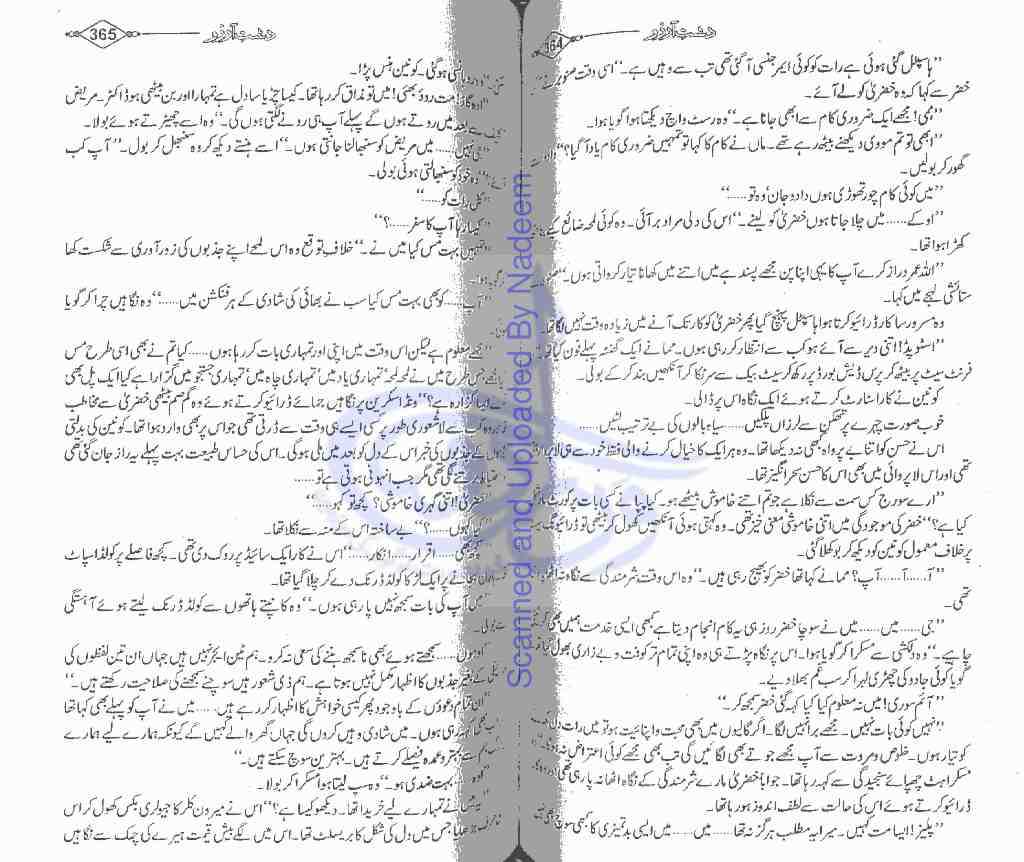 دشتِ آرزو
364
’’ہاسپٹل گئی ہوئی ہے رات کو کوئی ایمرجنسی آ گئی تھی تب سے وہیں ہے۔‘‘ اسی وقت
خضر سے کہا کہ وہ خضریٰ کو لے آئے۔
’’ممی! مجھے ایک ضروری کام سے ابھی جانا ہے۔‘‘ وہ رسٹ واچ دیکھتا ہوا گویا ہوا۔
’’ابھی تو تم مووی دیکھنے بیٹھ رہے تھے۔ ماں نے کام کا کہا تو تمہیں ضروری کام یاد آ گیا؟‘‘
گھور کر بولیں۔
’’میں کوئی کام چور تھوڑی ہوں دادو جان‘ وہ تو......‘‘
’’اوکے...... میں چلا جاتا ہوں خضریٰ کو لینے۔‘‘ اس کی دلی مراد بر آئی۔ وہ کوئی لمحہ ضائع کیے
کھڑا ہوا تھا۔
’’اللہ عمر دراز کرے آپ کا یہی اپنا پن مجھے پسند ہے میں اتنے میں کھانا تیار کرواتی ہوں۔‘‘
ستائشی لہجے میں کہا۔
وہ مسرور سا کار ڈرائیو کرتا ہوا ہاسپٹل پہنچ گیا پھر خضریٰ کو کار تک آنے میں زیادہ وقت نہیں لگا تھا۔
’’اسٹوپڈ! اتنی دیر سے آئے ہو کب سے انتظار کر رہی ہوں۔ مما نے ایک گھنٹہ پہلے فون کیا تھا
فرنٹ سیٹ پر بیٹھ کر پرس ڈیش بورڈ پر رکھ کر سیٹ بیک سے سر ٹکا کر آنکھیں بند کر کے بولی۔
کونین نے کار اسٹارٹ کرتے ہوئے ایک نگاہ اس پر ڈالی۔
خوب صورت چہرے پر تھکن سے لرزاں پلکیں...... سیاہ بالوں کی بے ترتیب لٹیں......
اس نے حسن کو اتنا بے پرواہ کبھی نہ دیکھا تھا۔ وہ ہر ایک کا خیال کرنے والی فقط خود سے ہی لاپروا
تھی اور اس لاپروائی میں بھی اس کا حسن سحر انگیز تھا۔
’’ارے سورج کس سمت سے نکلا ہے جو تم اتنے خاموش بیٹھے ہو۔ کیا پاپا نے کسی بات پر کورٹ مارشل
کیا ہے؟‘‘ خضر کی موجودگی میں اتنی خاموشی معنی خیز تھی۔ وہ کہتی ہوئی آنکھیں کھول کر بیٹھی تو ڈرائیونگ
پر خلاف معمول کونین کو دیکھ کر بوکھلا گئی۔
’’آ...... آ...... آپ؟ مما نے کہا تھا خضر کو بھیج رہی ہیں۔‘‘ وہ اس وقت شرمندگی سے نگاہ نہ اٹھا
تھی۔
’’جی...... میں...... میں نے سوچا خضر روز ہی یہ کام انجام دیتا ہے کبھی ایسی خدمت ہمیں بھی
چاہیے۔‘‘ وہ دلکشی سے مسکرا کر گویا ہوا۔ اس پر نگاہ پڑتے ہی وہ اپنی تمام تر کوفت و بے زاری بھول گیا تھا
گویا کوئی جادو کی چھڑی لہرا کر سب غم بھلا دیے۔
’’آئم سوری! میں نہ معلوم کیا کیا کہہ گئی خضر سمجھ کر۔‘‘
’’نہیں کوئی بات نہیں۔ مجھے برا نہیں لگا۔ اگر گالیوں میں بھی محبت و اپنائیت ہو تو میں رات دن
کو تیار ہوں۔ خلوص و مروت سے آپ مجھے جوتے بھی لگائیں گی تب بھی مجھے کوئی اعتراض نہ ہوگا۔
مسکراہٹ چھپائے سنجیدگی سے کہہ رہا تھا۔ جواباً خضریٰ مارے شرمندگی کے نگاہ اٹھا نہ پا رہی تھی
ڈرائیو کرتے ہوئے اس کی حالت سے لطف اندوز ہو رہا تھا۔
’’پلیز! ایسا مت کہیں۔ میرا یہ مطلب ہرگز نہ تھا...... میں...... میں ایسی بدتمیزی کا کبھی سوچ بھی
Scanned and Uploaded By Nadeem
دشتِ آرزو
365
روہانسی ہو گئی۔ کونین ہنس پڑا۔
مت روؤ بھئی! میں تو مذاق کر رہا تھا۔ کیسا چڑیا سا دل ہے تمہارا اور بن بیٹھی ہو ڈاکٹر۔ مریض
بعد میں روتے ہوں گے پہلے آپ ہی رونے لگتی ہوں گی۔‘‘ وہ اسے چھیڑتے ہوئے بولا۔
’’جی نہیں...... میں مریض کو سنبھالنا جانتی ہوں۔‘‘ اسے ہنستے دیکھ کر وہ سنبھل کر بولی۔ ’’آپ کب
وہ خود کو سنبھالتی ہوئی بولی۔
’’کل رات کو......‘‘
’’کیسا رہا آپ کا سفر......؟‘‘
’’تمہیں بہت مس کیا میں نے۔‘‘ خلاف توقع وہ اس لمحے اپنے جذبوں کی زور آوری سے شکست کھا
ہوا۔
’’آپ...... کو بھی بہت مس کیا سب نے بھائی کی شادی کے ہر فنکشن میں......‘‘ وہ نگاہیں چرا کر گویا
’’مجھے معلوم ہے لیکن اس وقت میں اپنی اور تمہاری بات کر رہا ہوں...... کیا تم نے بھی اسی طرح مس
جس طرح میں نے لمحہ لمحہ تمہاری یاد میں‘ تمہاری چاہ میں‘ تمہاری جستجو میں گزارا ہے کیا ایک پل بھی
ایسا گزارا ہے؟‘‘ ونڈ اسکرین پر نگاہیں جمائے ڈرائیو کرتے ہوئے وہ گم صم بیٹھی خضریٰ سے مخاطب
وہ کب سے لاشعوری طور پر کسی ایسے ہی وقت سے ڈرتی تھی جو اس پر بھی وارد ہوا تھا۔ کونین کی بدلتی
جذبوں کی خبر اس کے دل کو بعد میں ملی ہوگی۔ اس کی حساس طبیعت بہت پہلے یہ راز جان گئی تھی
تھی مگر جب انہونی ہوتی ہے تو......
’’خضریٰ! اتنی گہری خاموشی؟ کچھ تو کہو......‘‘
’’کیا کہوں......؟‘‘ بے ساختہ اس کے منہ سے نکلا تھا۔
’’کچھ بھی...... اقرار...... انکار......‘‘ اس نے کار ایک سائیڈ پر روک دی تھی۔ کچھ فاصلے پر کولڈ اسپاٹ
پر ایک لڑکا کولڈ ڈرنک دے کر چلا گیا تھا۔
’’میں آپ کی بات سمجھ نہیں پا رہی ہوں۔‘‘ وہ کانپتے ہاتھوں سے کولڈ ڈرنک لیتے ہوئے آہستگی
سے بولی۔
سمجھتے ہوئے بھی نا سمجھ بننے کی سعی نہ کرو۔ ہم ٹین ایجر نہیں ہیں جہاں ان تین لفظوں کی
کے بغیر جذبوں کا اظہار مکمل نہیں ہوتا ہے۔ ہم ذی شعور ہیں سوچنے سمجھنے کی صلاحیت رکھتے ہیں۔‘‘
’’ان تمام دعوؤں کے باوجود پھر کیسی خواہش کا اظہار کر رہے ہیں...... میں نے آپ کو پہلے بھی کہا تھا
رہی ہوں۔ میں شادی وہیں کروں گی جہاں گھر والے کہیں گے کیونکہ ہمارے لیے ہمارے
بہتر و عمدہ فیصلے کرتے ہیں۔ بہترین سوچ سکتے ہیں۔‘‘
بہت ضدی ہو۔‘‘ وہ سپ لیتا ہوا مسکرا کر بولا۔
’’یہ میں نے تمہارے لیے خریدا تھا۔ دیکھو کیسا ہے؟‘‘ اس نے میرون کلر کا جیولری بکس کھول کر اس
جس میں دل کی شکل کا بریسلٹ تھا۔ اس میں لگے بیش قیمت ہیرے کی چمک سے نگاہیں